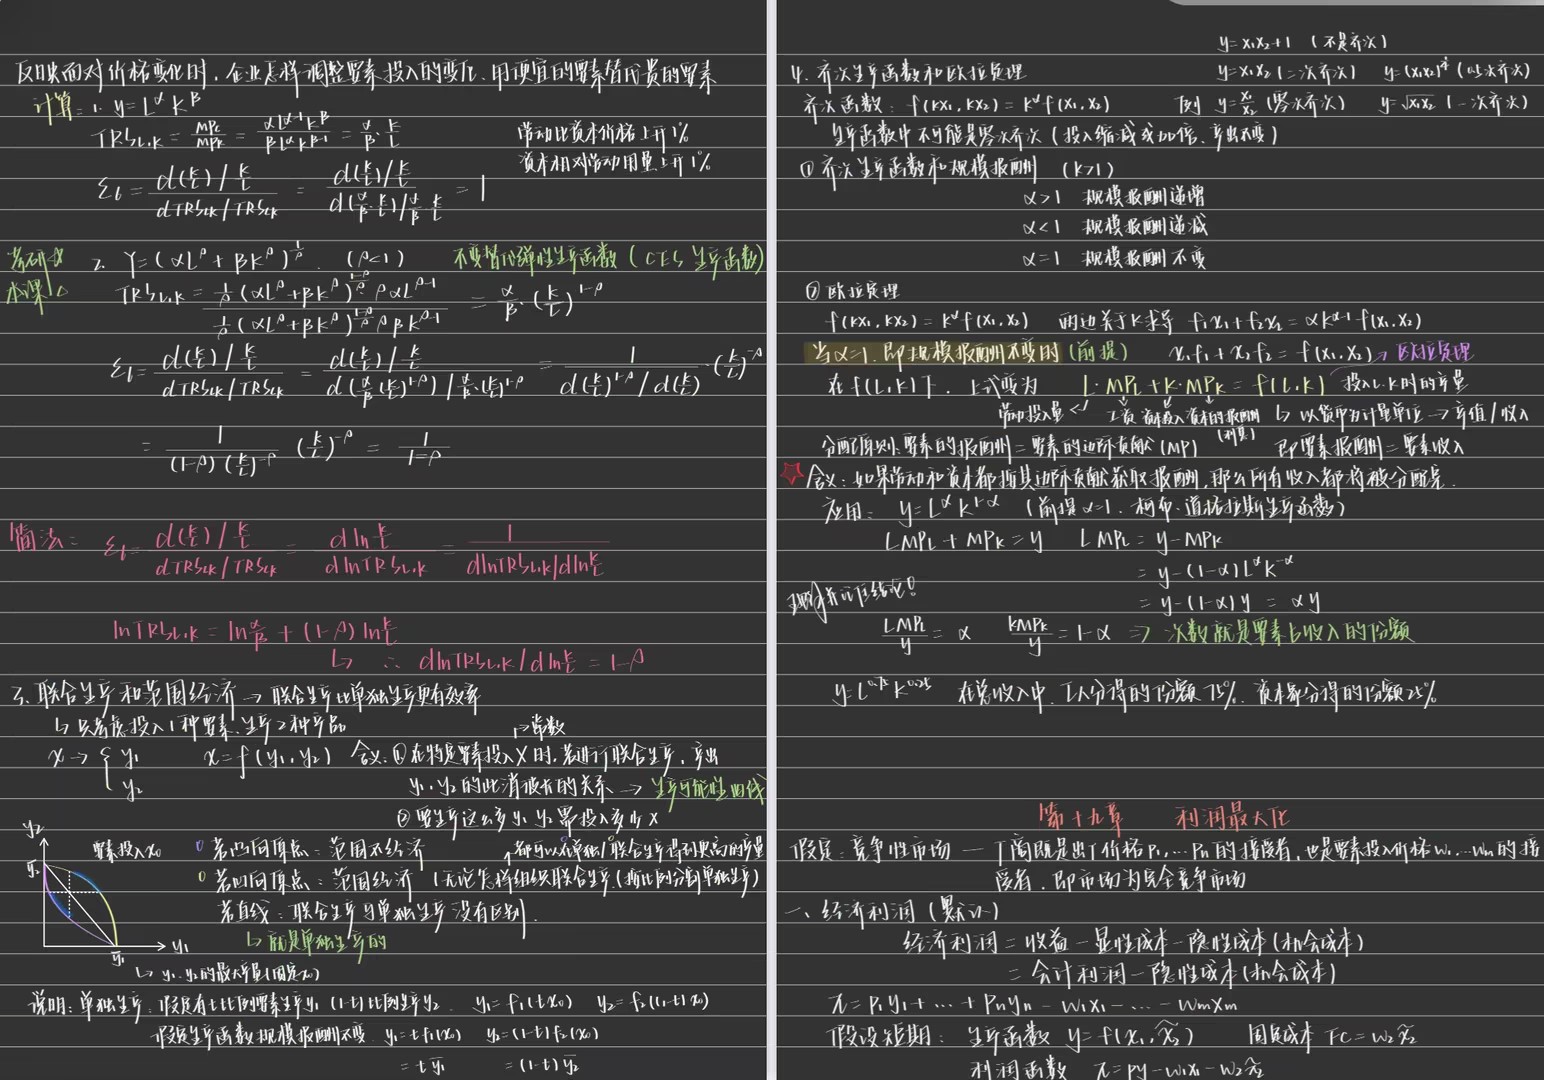 反映面对价格变化时，企业怎样调整要素投入的变化.用便宜的要素替代贵的要素
计算：1. y=L^α K^β
TRS_{L,K} = MP_L/MP_K = αL^{α-1}K^β / βL^αK^{β-1} = α/β · K/L
劳动比资本价格上升1%
资本相对劳动用量上升1%
ε_σ = d(K/L)/(K/L) / dTRS_{LK}/TRS_{LK} = d(K/L)/(K/L) / d(α/β·K/L)/(α/β·K/L) = 1
考研☆
本课△
2. Y=(αL^ρ+βK^ρ)^{1/ρ}. (ρ<1) 不变替代弹性生产函数(CES 生产函数)
TRS_{L,K} = 1/ρ(αL^ρ+βK^ρ)^{(1-ρ)/ρ} ραL^{ρ-1} / 1/ρ(αL^ρ+βK^ρ)^{(1-ρ)/ρ} ρβK^{ρ-1} = α/β·(K/L)^{1-ρ}
ε_σ = d(K/L)/(K/L) / dTRS_{LK}/TRS_{LK} = d(K/L)/(K/L) / d(α/β(K/L)^{1-ρ})/(α/β·(K/L)^{1-ρ}) = 1 / d(K/L)^{1-ρ}/d(K/L) · (K/L)^{-ρ}
= 1/((1-ρ)(K/L)^{-ρ}) (K/L)^{-ρ} = 1/(1-ρ)
简法： ε_σ = d(K/L)/(K/L) / dTRS_{LK}/TRS_{LK} = dln K/L / dlnTRS_{L,K} = 1 / dlnTRS_{L,K}/dln K/L
lnTRS_{L,K} = ln α/β + (1-ρ)ln K/L
↳ ∴ dlnTRS_{L,K}/dln K/L = 1-ρ
三、联合生产和范围经济 → 联合生产比单独生产更有效率
↳ 只考虑投入1种要素、生产2种产品
x → { y₁ y₂ x=f(y₁,y₂) 含义：①在特定要素投入X时，若进行联合生产，产出
→常数
y₁,y₂的此消彼长的关系 → 生产可能性曲线
②要生产这么多 y₁ y₂ 需投入多少 x
y₂ 要素投入x₀ ①若凸向原点：范围不经济
都可以在单独/联合生产得到更高的产量
②若凹向原点：范围经济 (无论怎样组织联合生产.(按比例分割单独生产)
若直线：联合生产与单独生产没有区别.
↳ 就是单独生产的
ȳ₂ ȳ₁ y₁
↳ y₁.y₂的最大产量(固定x₀)
说明：单独生产：假定有t比例要素生产y₁ (1-t)比例生产y₂. y₁=f₁(tx₀) y₂=f₂((1-t)x₀)
假定生产函数规模报酬不变. y₁=tf₁(x₀) y₂=(1-t)f₂(x₀)
= tȳ₁ =(1-t)ȳ₂
y=x₁x₂+1 (不是齐次)
4. 齐次生产函数和欧拉定理 y=x₁x₂ (二次齐次)
齐次函数：f(kx₁,kx₂)=k^α f(x₁,x₂) 例 y=x₁/x₂ (零次齐次) y=√x₁x₂ (一次齐次)
生产函数中不可能是零次齐次(投入缩减或加倍，产出不变)
① 齐次生产函数和规模报酬 (k>1)
α>1 规模报酬递增
α<1 规模报酬递减
α=1 规模报酬不变
② 欧拉定理
f(kx₁,kx₂)=k^α f(x₁,x₂) 两边关于K求导 f₁x₁+f₂x₂=αk^{α-1}f(x₁,x₂)
当α=1.即规模报酬不变时(前提) x₁f₁+x₂f₂=f(x₁,x₂) → 欧拉定理
在f(L,K)下，上式变为 L·MP_L+K·MP_K=f(L,K) 投入L.K时的产量
劳动投入量↙ 工资 资本投入 资本的报酬(利息) ↳ 以货币为计量单位→产值/收入
分配原则：要素的报酬=要素的边际贡献(MP) 即要素报酬=要素收入
☆ 含义：如果劳动和资本都按其边际贡献获取报酬，那么所有收入都将被分配完.
应用： y=L^α K^{1-α} (前提α=1. 柯布·道格拉斯生产函数)
LMP_L+MP_K=y LMP_L=y-MP_K
= y-(1-α)L^αK^{-α}
= y-(1-α)y = αy
LMP_L/y = α KMP_K/y = 1-α ⇒ 次数就是要素占收入的份额
y=L^{0.75}K^{0.25} 在总收入中，工人分得的份额75%. 资本家分得的份额25%
第十九章 利润最大化
假定：竞争性市场 — 厂商既是出厂价格p₁,…pₙ的接受者，也是要素投入价格w₁,…wₘ的接
受者.即市场为完全竞争市场
一、经济利润(默认)
经济利润=收益-显性成本-隐性成本(机会成本)
=会计利润-隐性成本(机会成本)
π=p₁y₁+…+pₙyₙ-w₁x₁-…-wₘxₘ
假设短期： 生产函数 y=f(x₁,x̃₂) 固定成本 FC=w₂x̃₂
利润函数 π=py-w₁x₁-w₂x̃₂